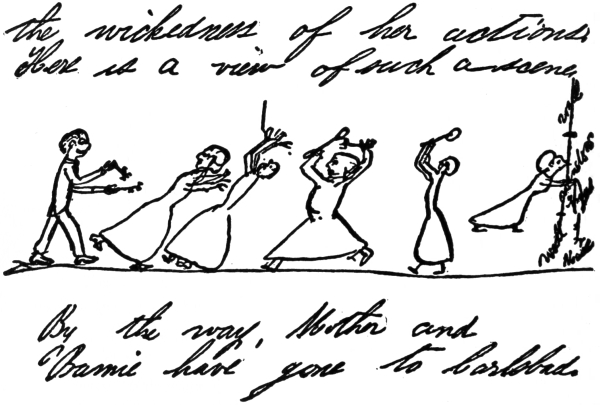 the wickedness of her actions.
Here is a view of such a scene.
By the way, Mother and
Bamie have gone to Carlsbad.